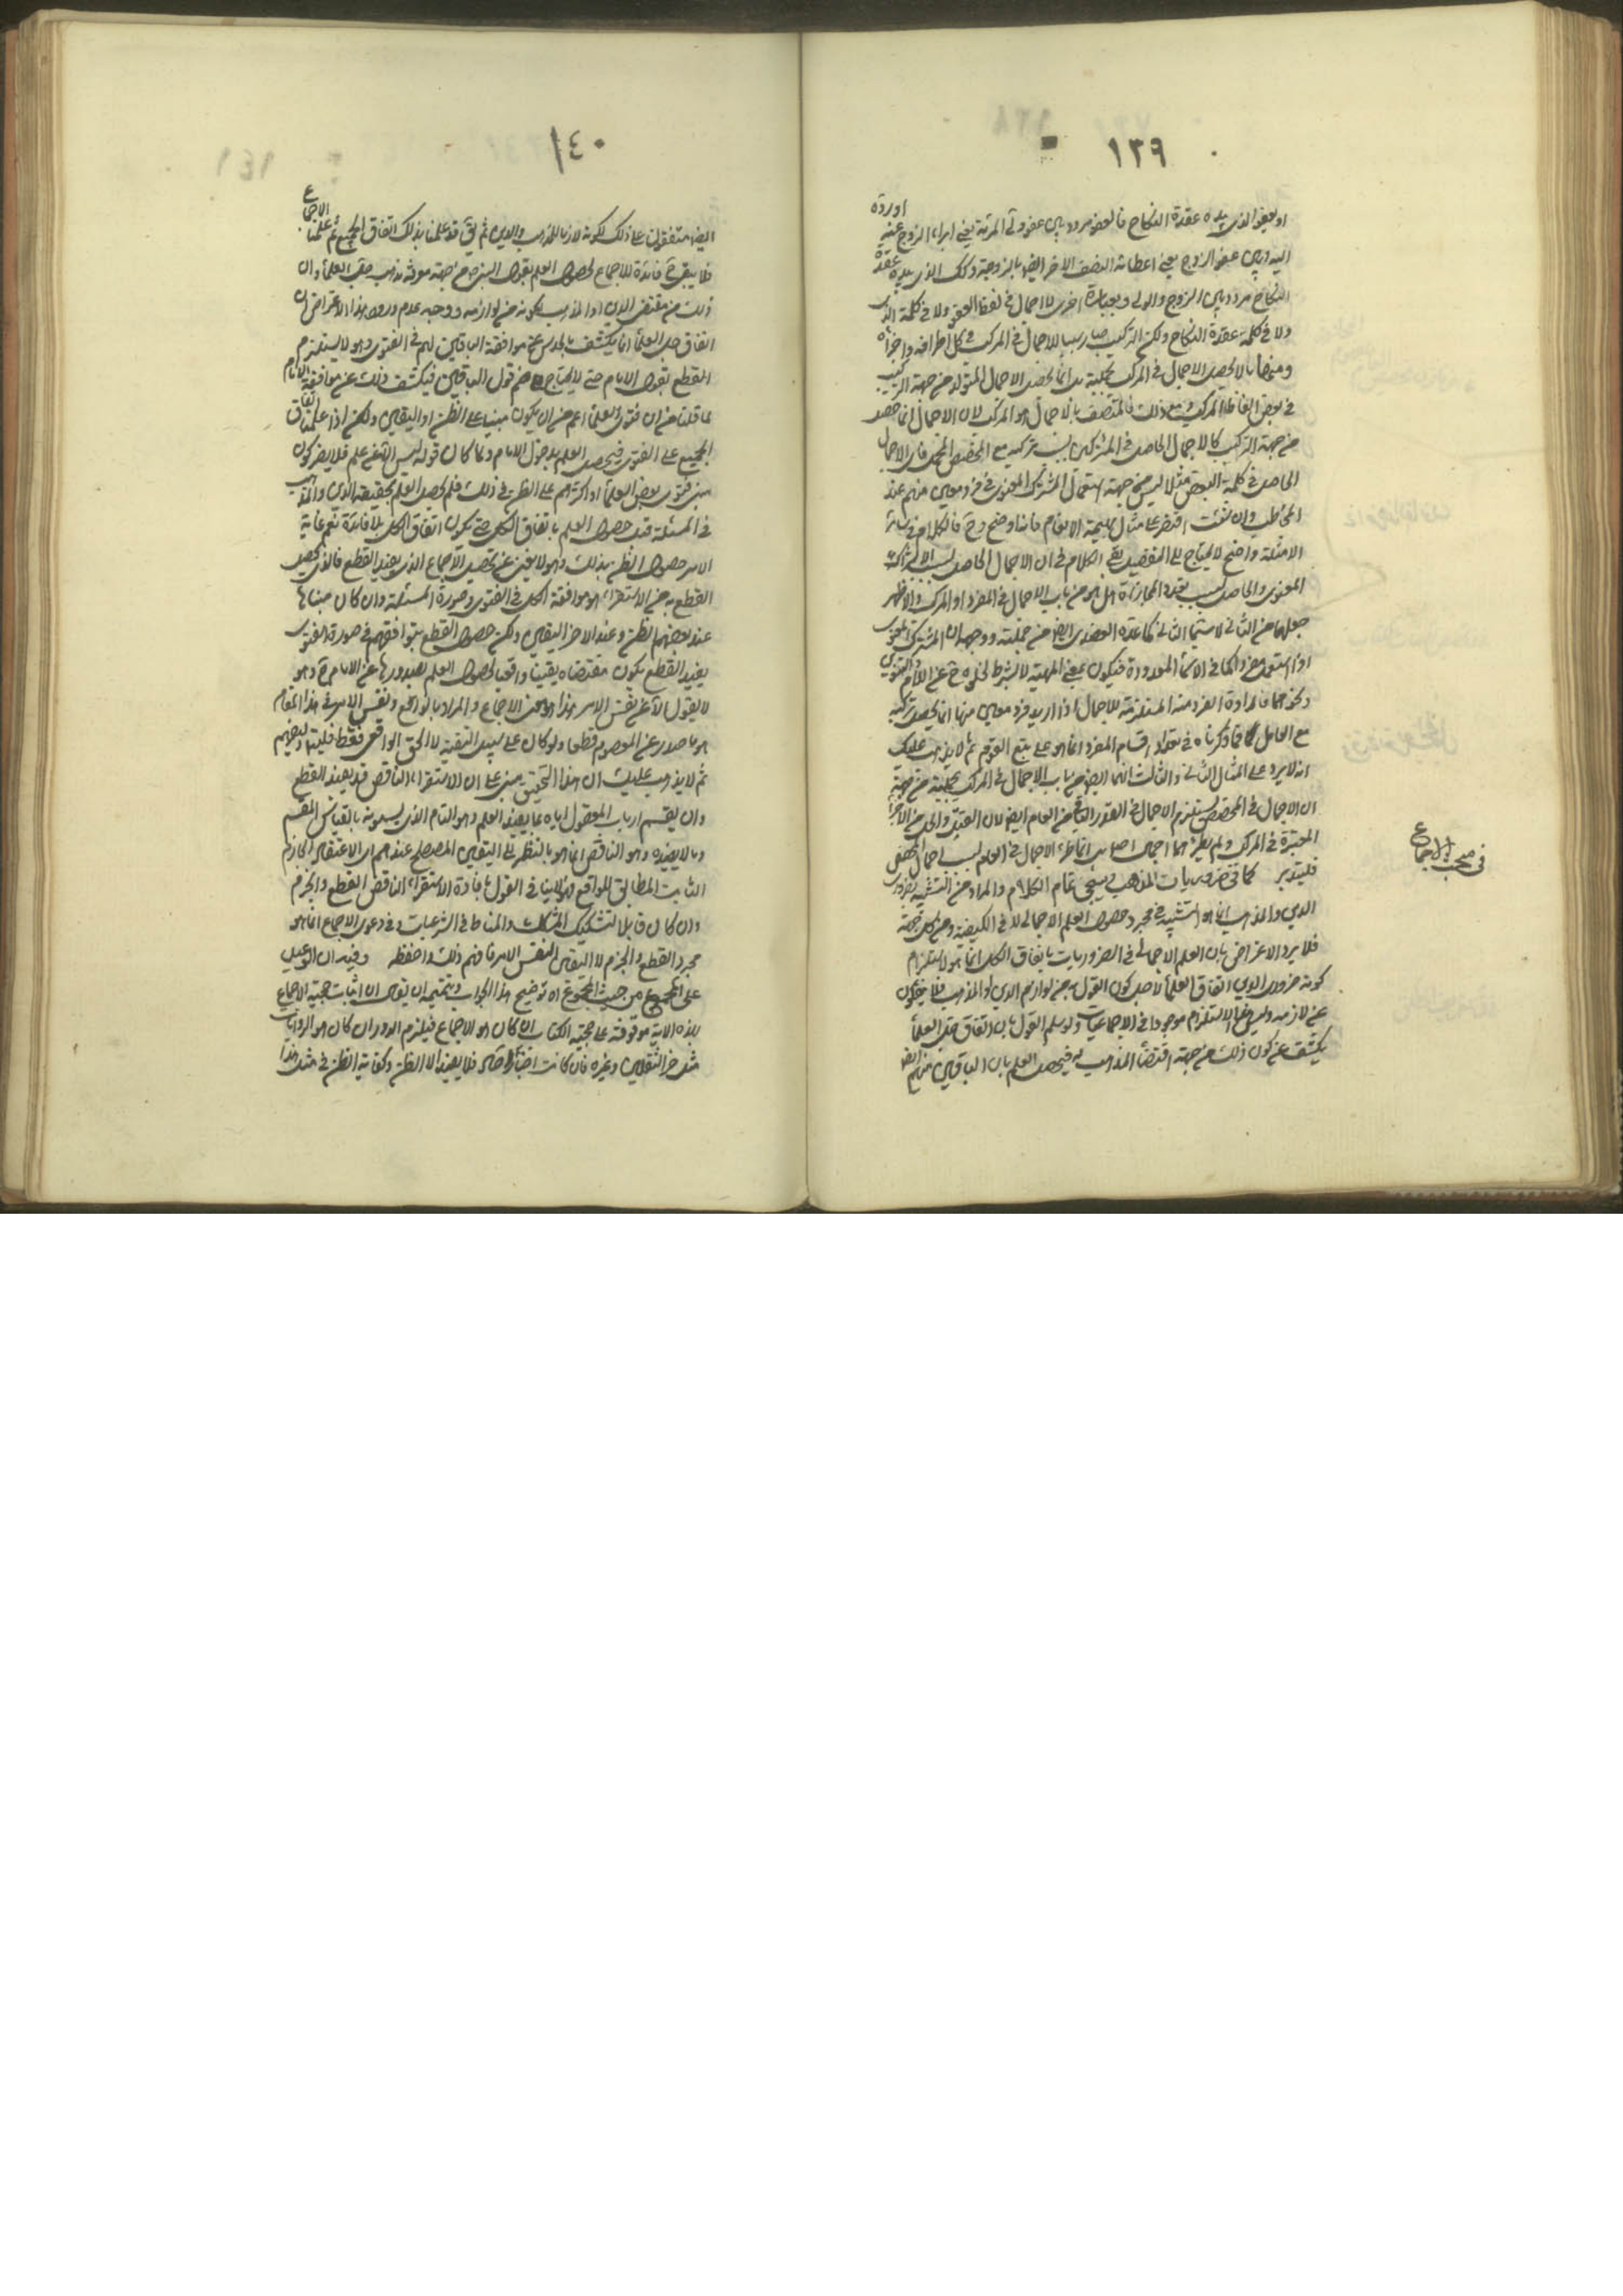 ١٣٩
او يعفو الذى بيده عقدة النكاح فالعفو مردد بين عفو ولى المرئة يعنى ابراء الزوج عنه اوردة
اليه وبين عفو الزوج يعنى اعطائه النصف الاخر ايضا بالزوجة وكك الذى بيده عقدة
النكاح مردد بين الزوج والولى وبعبارة اخرى لا اجمال فى لفظ العفو ولا فى كلمة الذى
ولا فى كلمة عقدة النكاح ولكن التركيب صار سببا للاجمال فى المركب فى كل اطرافه واجزائه
ومنها ما لا يحصل الاجمال فى المركب بجملته بل انما يحصل الاجمال المتولد من جهة التركيب
فى بعض الفاظ المركب ومع ذلك فالمتصف بالاجمال هو المركب لان الاجمال انما حصل
من جهة التركيب كالاجمال الحاصل فى المشركين بسبب تركيبه مع المخصص المجمل فان الاجمال
الحاصل فى كلمة البعض مثلا ليس من جهة استعمال المشترك المعنوى فى فرد معين منهم عند
المخاطب وان شئت اقتصر على مثال بهيمة الانعام فانه اوضح وح فالكلام فى سائر
الامثلة واضح لا يحتاج الى التفصيل بقى الكلام فى ان الاجمال الحاصل بسبب الاشتراك
المعنوى والحاصل بسبب تعدد المجازات هل هو من باب الاجمال فى المفرد او المركب والاظهر
جعلهما من الثانى لا سيما الثانى كما عده العضدى ايضا من جملته ووجهه ان المشترك المعنوى
اذا استعمل مفردا كما فى الاسماء المعدودة فيكون بمعنى المهية لا بشرط لخلوه ح عن اللام والتنوين
ونحوهما فارادة الفرد منه المستلزمة للاجمال اذا اريد فرد معين منها انما يحصل بتركيبه
مع العامل فما ذكرناه فى تعداد اقسام المفرد انما هو على تبع القوم ثم لا يذهب عليك
انه لا يرد على المثال الثانى والثالث انهما ايضا من باب الاجمال فى المركب بجملته من جهة
ان الاجمال فى المخصص يستلزم الاجمال فى القدر الباقى من العام ايضا لان العتق والحل من الاجزاء
المعتبرة فى المركب ولم يطرئهما اجمال اصلا بل انما طرء الاجمال فى العام بسبب اجمال المخصص
فليتدبر كما فى ضروريات المذهب وسيجى تمام الكلام والمراد من التشبيه بضرورى
الدين والمذهب انما هو التشبيه فى مجرد حصول العلم الاجمالى لا فى الكيفية ومن كل جهة
فلا يرد الاعتراض بان العلم الاجمالى فى الضروريات باتفاق الكل انما هو لاستلزام
كونه ضرورى الدين اتفاق العلماء لاجل كون القول به من لوازم الدين او المذهب فلا ينفكون
عن لازمه وليس هذا الاستلزام موجودا فى الاجماعيات ولو سلم القول بان اتفاق جل العلماء
يكشف عن كون ذلك من جهة اقتضاء المذهب له فيحصل العلم بان الباقين منهم ايضا
فى مبحث الاجماع
١٤٠
ايضا متفقون على ذلك لكونه لازما للمذهب والدين ثم نقول قد علمنا بذلك اتفاق الجميع ثم علمنا الاجماع
فلا يبقى ح فائدة للاجماع لحصول العلم بقول النبى ص من جهة معرفة مذهب جل العلماء وان
ذلك من مقتضى الدين او المذهب لكونه من لوازمه ووجه عدم ورود هذا الاعتراض ان
اتفاق جل العلماء انما يكشف بالحدس عن موافقة الباقين لهم فى الفتوى وهو لا يستلزم
القطع بقول الامام حتى لا يحتاج الى ضم قول الباقين فيكشف ذلك عن موافقة الامام
لما قلنا من ان فتوى العلماء اعم من ان يكون مبنيا على الظن او اليقين ولكن اذا علمنا اتفاق
الجميع على الفتوى فيحصل العلم بدخول الامام ولما كان قوله ليس الا عن علم فلا يضر كون
مبنى فتوى بعض العلماء او اكثرهم على الظن فى ذلك فلم يحصل العلم بحقيقة الدين والمذهب
فى المسئلة قبل حصول العلم باتفاق الكل حتى يكون اتفاق الكل بلا فائدة نعم غاية
الامر حصول الظن بذلك وهو لا يغنى عن تحصيل الاجماع الذى يفيد القطع فالذى يحصل
القطع به من الاستقراء هو موافقة الكل فى الفتوى وصورة المسئلة وان كان مبناها
عند بعضهم الظن وعند الاخر اليقين ولكن حصول القطع بتوافقهم فى صورة الفتوى
يفيد القطع بكون مقتضاه يقينا واقعيا لحصول العلم بصدورها عن الامام ع وهو
لا يقول الا عن نفس الامر وهذا هو معنى الاجماع والمراد بالواقع ونفس الامر فى هذا المقام
هو ما صدر عن المعصوم قطعا ولو كان على سبيل التقية لا الحق الواقعى فقط فليتدبر
ثم لا يذهب عليك ان هذا التحقيق مبنى على ان الاستقراء الناقص قد يفيد القطع
وان تقسيم ارباب المعقول اياه بما يفيد العلم وهو التام الذى يسمونه بالقياس المقسم
وما لا يفيده وهو الناقص انما هو بالنظر الى اليقين المصطلح عندهم اى الاعتقاد الجازم
الثابت المطابق للواقع فلا ينافى القول بافادة الاستقراء الناقص القطع والجزم
وان كان قابلا لتشكيك المشكك والمناط فى الشرعيات وفى دعوى الاجماع انما هو
مجرد القطع والجزم لا اليقين النفس الامرى فافهم ذلك واحفظه وفيه ان الوعيد
على المجموع من حيث المجموع اه توضيح هذا الجواب وتتميمه ان يقال ان اثبات حجية الاجماع
بهذه الاية موقوفة على حجية الكتاب ان كان هو الاجماع فيلزم الدور وان كان هو الروايات
مثل خبر الثقلين وغيره فان كانت اخبار احاد فلا يفيد الا الظن وكفاية الظن فى مثل هذا